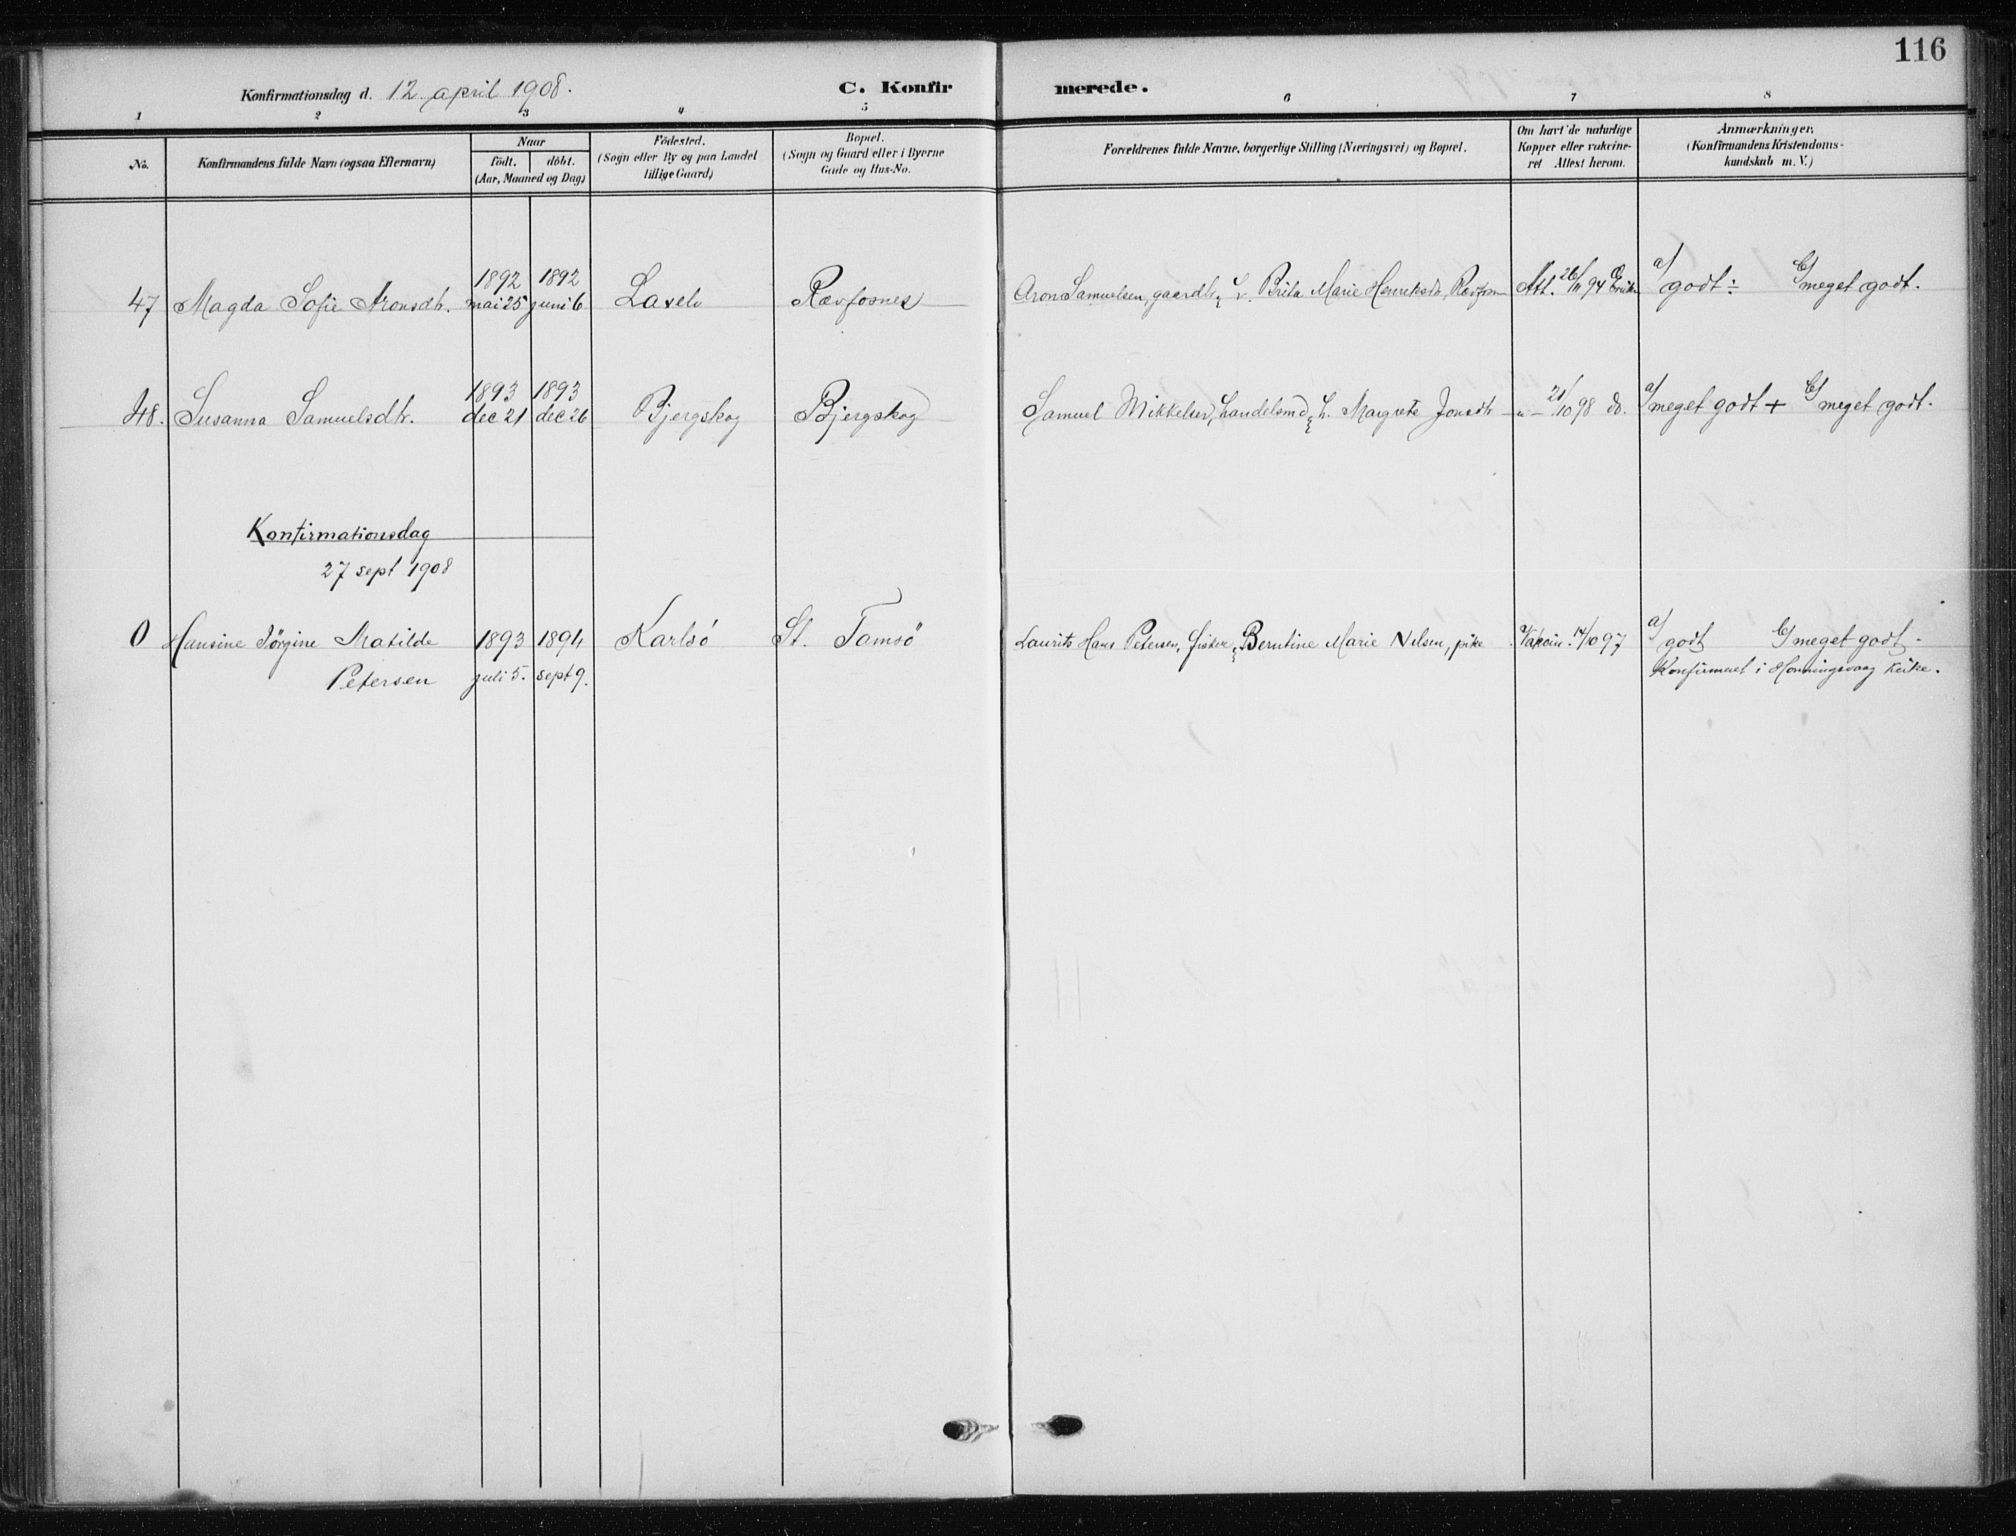 116
Konfirmationsdag d. 12 april 1908.
C. Konfirmerede.
1 2 3 4 5 6 7 8
No.
Konfirmandens fulde Navn (ogsaa Efternavn)
Naar
født. døbt.
(Aar, Maaned og Dag)
Fødested.
(Sogn eller By og paa Landet
tillige Gaard)
Bopæl.
(Sogn og Gaard eller i Byerne
Gade og Hus-No.
Forældrenes fulde Navne, borgerlige Stilling (Næringsvei) og Bopæl.
Om havt de naturlige
Kopper eller vakcine-
ret Attest herom.
Anmærkninger.
(Konfirmandens Kristendoms-
kundskab m. V.)
1892 1892
47 Magda Sofie Aronsdtr. mai 25 juni 6 Laxelv Rævfosnes Aron Samuelsen, gaardbr. & Brita Marie Henriksdtr, Att. 26/11 94 a/ godt ÷ b/ meget godt.
1893 1893
48. Susanna Samuelsdtr. dec 21 dec 26 Bjergskog Bjergskog Samuel Mikkelsen, handelsmd & h. Margrete Jonsdtr -"- 21/10 98 do. a/ meget godt + b/ meget godt.
Konfirmationsdag
27 sept 1908
0 Hansine Jörgine Matilde 1893 1894 Karlsö St. Tamsö Laurits Hans Petersen, fisker & Berntine Marie Nilsen, pike Vakcin. 14/10 97 a/ godt b/ meget godt -
Petersen juli 5. sept 9. Konfirmeret i Honningsvaag kirke.